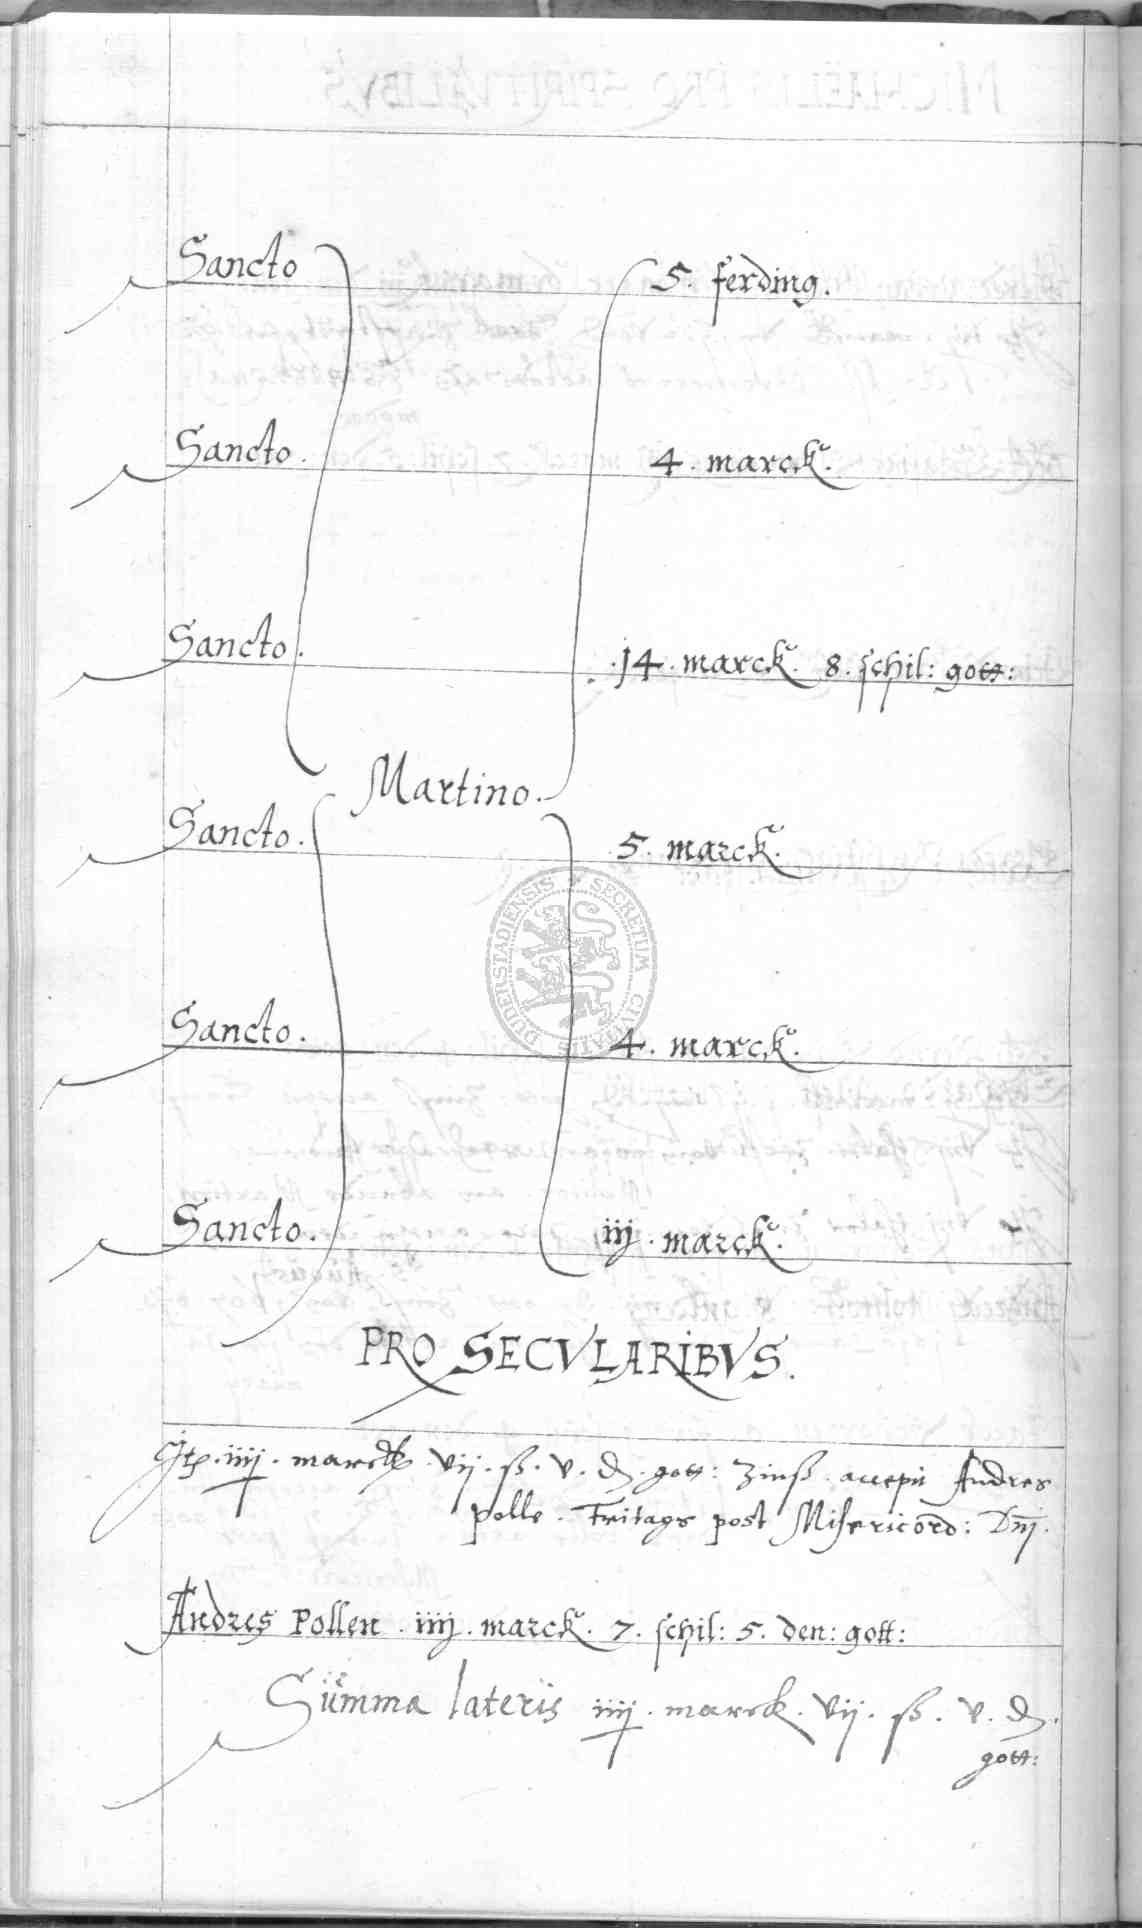 Sancto 5. ferding.
Sancto. 4. marck.
Sancto. 14. marck. 8. schil: gott:
Martino.
Sancto. 5. marck.
SECRETUM CIVITATIS DUDERSTADIENSIS
Sancto. 4. marck.
Sancto. iiij. marck.
PRO SECVLARIBVS.
Jtē. iiij. marck vij. ß. v. d. gott: Zinß. accepit Andres
Polle. Freitags post Misericord: Dn̄j.
Andres Pollen. iiij. marck. 7. schil: 5. den: gott:
Summa lateris iiij. marck. vij. ß. v. d.
gott: